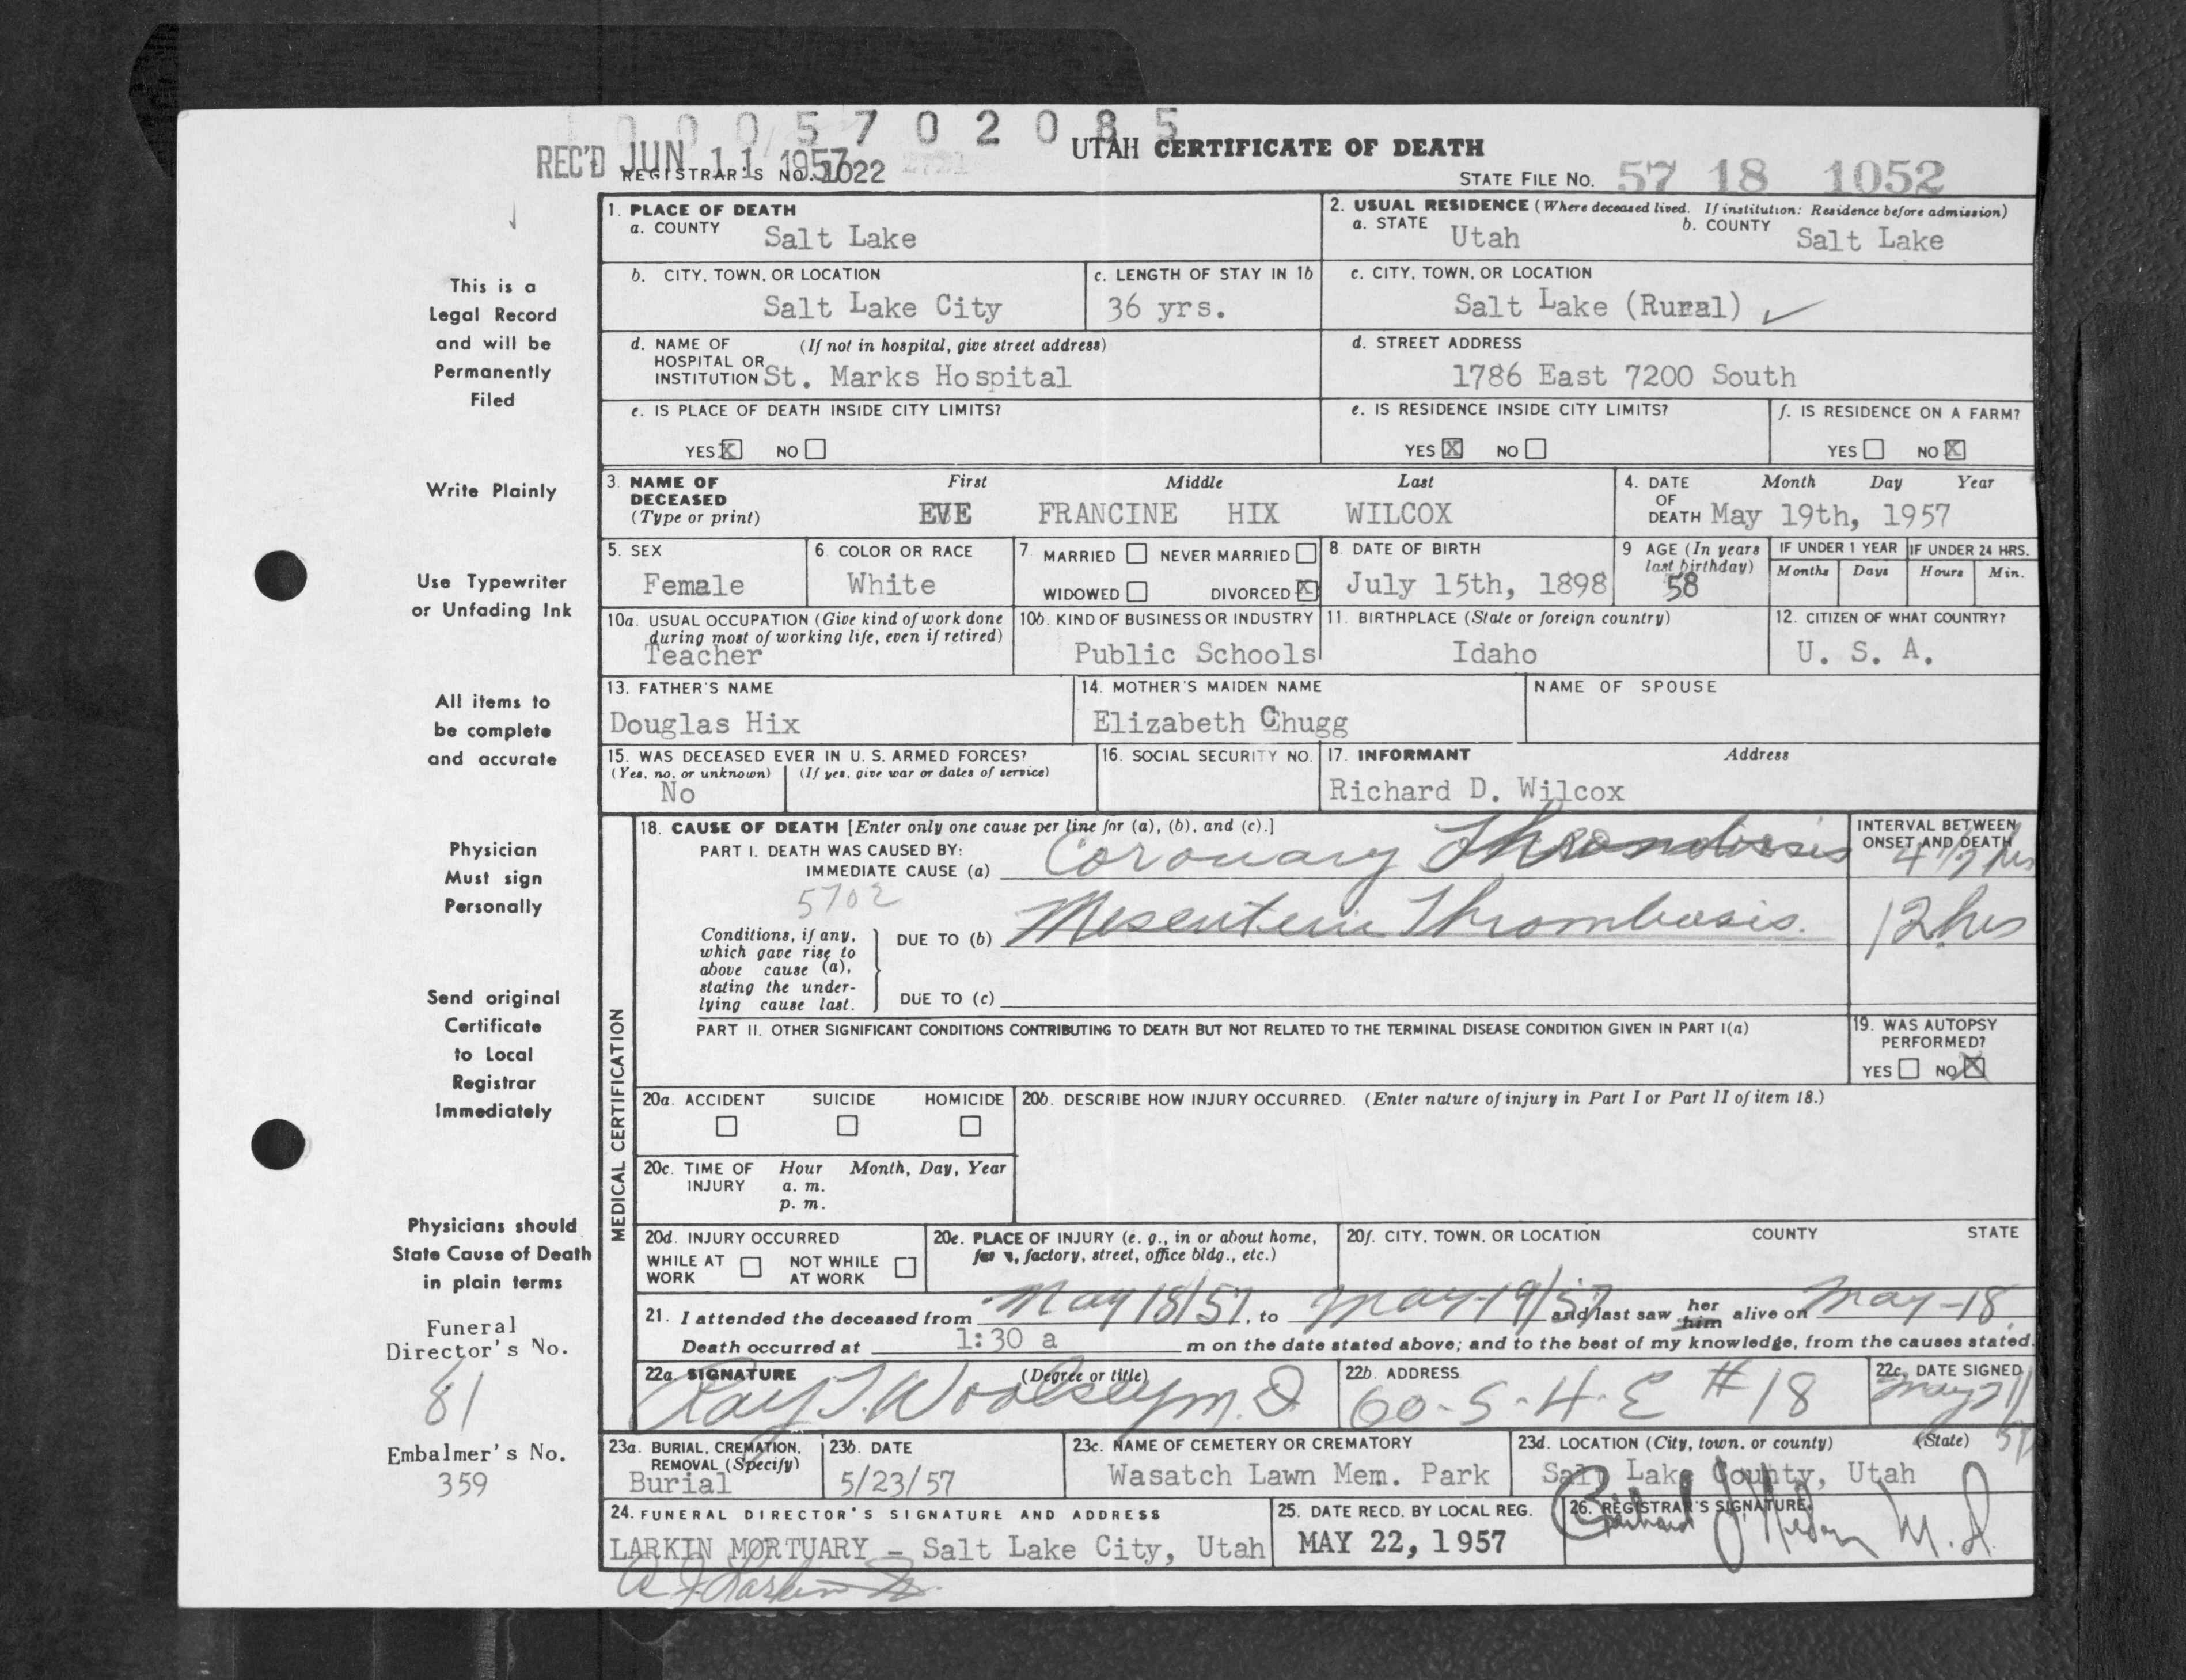 0 0 0 5 7 0 2 0 8 5
REC'D JUN 11 1957
REGISTRAR'S NO. 1022
UTAH CERTIFICATE OF DEATH
STATE FILE NO. 57 18 1052
This is a
Legal Record
and will be
Permanently
Filed
Write Plainly
Use Typewriter
or Unfading Ink
All items to
be complete
and accurate
Physician
Must sign
Personally
Send original
Certificate
to Local
Registrar
Immediately
Physicians should
State Cause of Death
in plain terms
Funeral
Director's No.
81
Embalmer's No.
359
1. PLACE OF DEATH
a. COUNTY Salt Lake
2. USUAL RESIDENCE (Where deceased lived. If institution: Residence before admission)
a. STATE Utah b. COUNTY Salt Lake
b. CITY, TOWN, OR LOCATION
Salt Lake City
c. LENGTH OF STAY IN 1b
36 yrs.
c. CITY, TOWN, OR LOCATION
Salt Lake (Rural)
d. NAME OF (If not in hospital, give street address)
HOSPITAL OR
INSTITUTION St. Marks Hospital
d. STREET ADDRESS
1786 East 7200 South
e. IS PLACE OF DEATH INSIDE CITY LIMITS?
YES X NO
e. IS RESIDENCE INSIDE CITY LIMITS?
YES X NO
f. IS RESIDENCE ON A FARM?
YES NO X
3. NAME OF First Middle Last
DECEASED
(Type or print) EVE FRANCINE HIX WILCOX
4. DATE Month Day Year
OF
DEATH May 19th, 1957
5. SEX
Female
6. COLOR OR RACE
White
7. MARRIED NEVER MARRIED
WIDOWED DIVORCED X
8. DATE OF BIRTH
July 15th, 1898
9 AGE (In years
last birthday)
58
IF UNDER 1 YEAR IF UNDER 24 HRS.
Months Days Hours Min.
10a. USUAL OCCUPATION (Give kind of work done
during most of working life, even if retired)
Teacher
10b. KIND OF BUSINESS OR INDUSTRY
Public Schools
11. BIRTHPLACE (State or foreign country)
Idaho
12. CITIZEN OF WHAT COUNTRY?
U. S. A.
13. FATHER'S NAME
Douglas Hix
14. MOTHER'S MAIDEN NAME
Elizabeth Chugg
NAME OF SPOUSE
15. WAS DECEASED EVER IN U. S. ARMED FORCES?
(Yes, no, or unknown) (If yes, give war or dates of service)
No
16. SOCIAL SECURITY NO.
17. INFORMANT Address
Richard D. Wilcox
MEDICAL CERTIFICATION
18. CAUSE OF DEATH [Enter only one cause per line for (a), (b), and (c).]
PART I. DEATH WAS CAUSED BY:
IMMEDIATE CAUSE (a) Coronary Thrombosis
INTERVAL BETWEEN
ONSET AND DEATH
4 1/2 hrs
5702
Conditions, if any,
which gave rise to
above cause (a),
stating the under-
lying cause last.
DUE TO (b) Mesenteric Thrombosis. 12 hrs
DUE TO (c)
PART II. OTHER SIGNIFICANT CONDITIONS CONTRIBUTING TO DEATH BUT NOT RELATED TO THE TERMINAL DISEASE CONDITION GIVEN IN PART I(a)
19. WAS AUTOPSY
PERFORMED?
YES NO X
20a. ACCIDENT SUICIDE HOMICIDE
20b. DESCRIBE HOW INJURY OCCURRED. (Enter nature of injury in Part I or Part II of item 18.)
20c. TIME OF Hour Month, Day, Year
INJURY a. m.
p. m.
20d. INJURY OCCURRED
WHILE AT NOT WHILE
WORK AT WORK
20e. PLACE OF INJURY (e. g., in or about home,
farm, factory, street, office bldg., etc.)
20f. CITY, TOWN, OR LOCATION COUNTY STATE
21. I attended the deceased from May 18/57, to May-19/57 and last saw her him alive on May-18
Death occurred at 1:30 a m on the date stated above; and to the best of my knowledge, from the causes stated.
22a. SIGNATURE (Degree or title)
Ray T. Woolsey M.D.
22b. ADDRESS
60-S-4-E #18
22c. DATE SIGNED
May 21
57
23a. BURIAL, CREMATION,
REMOVAL (Specify)
Burial
23b. DATE
5/23/57
23c. NAME OF CEMETERY OR CREMATORY
Wasatch Lawn Mem. Park
23d. LOCATION (City, town, or county) (State)
Salt Lake County, Utah
24. FUNERAL DIRECTOR'S SIGNATURE AND ADDRESS
LARKIN MORTUARY - Salt Lake City, Utah
25. DATE RECD. BY LOCAL REG.
MAY 22, 1957
26. REGISTRAR'S SIGNATURE
M.D.